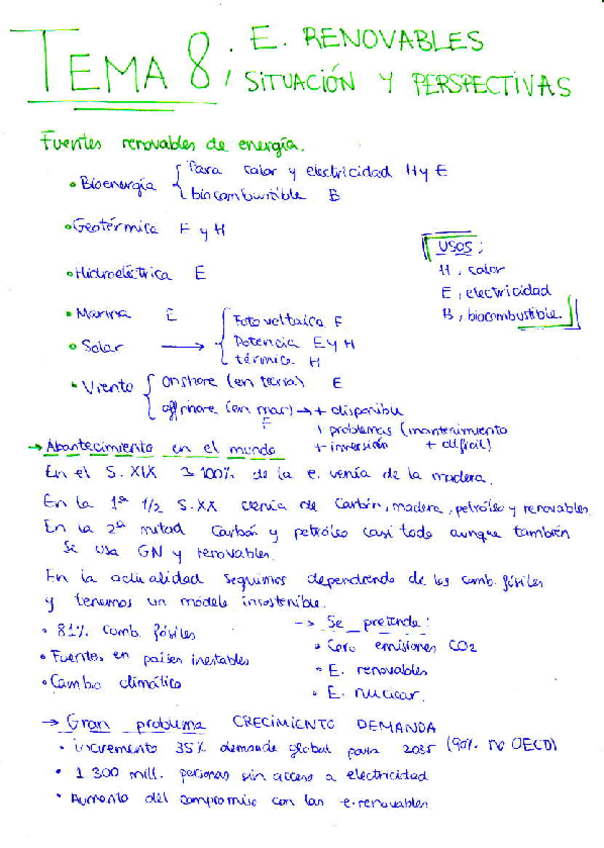 TEMA 8. E. RENOVABLES
SITUACIÓN Y PERSPECTIVAS
Fuentes renovables de energía.
• Bioenergía { Para calor y electricidad H y E
biocombustible B
• Geotérmica E y H
• Hidroeléctrica E
• Marina E
• Solar → { Fotovoltaica E
Potencia E y H
térmica H
• Viento { Onshore (en tierra) E
offshore (en mar) → + disponible
E
+ problemas (mantenimiento
+ inversión + difícil)
USOS:
H, calor
E, electricidad
B, biocombustible.
→ Abastecimiento en el mundo
En el S. XIX ≃ 100% de la e. venía de la madera.
En la 1ª 1/2 S. XX venía de Carbón, madera, petróleo y renovables.
En la 2ª mitad Carbón y petróleo casi todo aunque también
se usa GN y renovables.
En la actualidad seguimos dependiendo de los comb. fósiles
y tenemos un modelo insostenible.
• 81% comb. fósiles
• Fuentes en países inestables
• Cambio climático
→ Se pretende:
• Cero emisiones CO2
• E. renovables
• E. nuclear.
→ Gran problema CRECIMIENTO DEMANDA
• incremento 35% demanda global para 2035 (90% no OECD)
• 1300 mill. personas sin acceso a electricidad
• Aumento del compromiso con las e. renovables